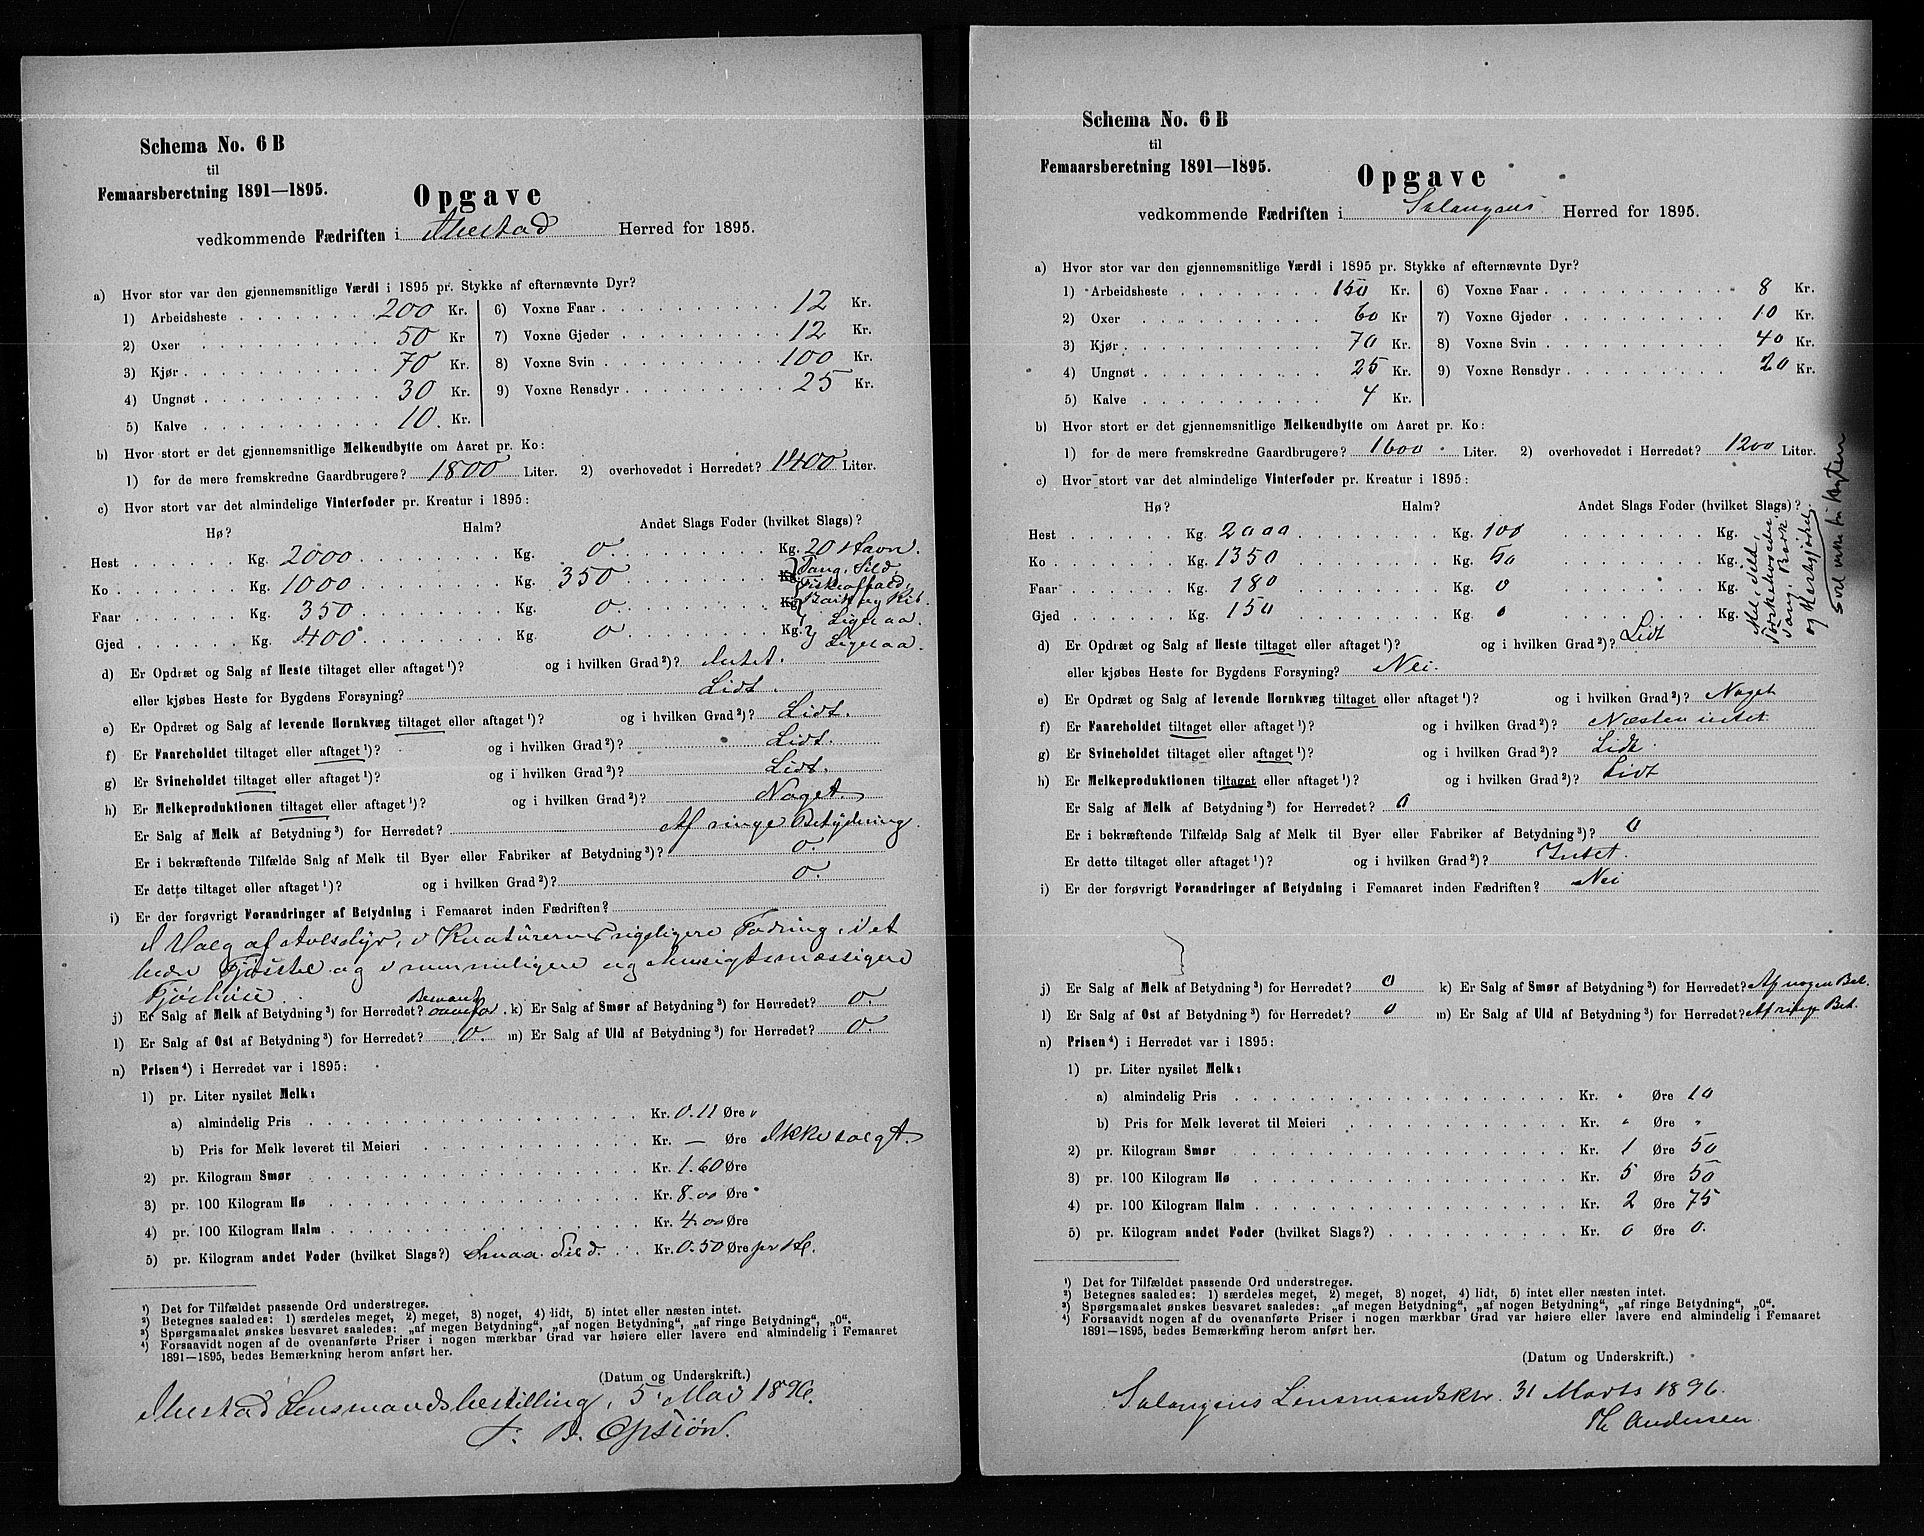 Schema No. 6 B
til
Femaarsberetning 1891—1895.
Opgave
vedkommende Fædriften i Ibestad Herred for 1895.
a) Hvor stor var den gjennemsnitlige Værdi i 1895 pr. Stykke af efternævnte Dyr?
1) Arbeidsheste 200 Kr. 6) Voxne Faar 12 Kr.
2) Oxer 50 Kr 7) Voxne Gjeder 12 Kr.
3) Kjør 70 Kr. 8) Voxne Svin 100 Kr.
4) Ungnøt 30 Kr. 9) Voxne Rensdyr 25 Kr.
5) Kalve 10. Kr.
b) Hvor stort er det gjennemsnitlige Melkeudbytte om Aaret pr. Ko:
1) for de mere fremskredne Gaardbrugere? 1800 Liter. 2) overhovedet i Herredet? 1400 Liter.
c) Hvor stort var det almindelige Vinterfoder pr. Kreatur i 1895:
Hø? Halm? Andet Slags Foder (hvilket Slags)?
Hest Kg. 2000 Kg. 0 Kg. 20 Havn.
Ko Kg. 1000 Kg. 350 Kg. Tang, Sild, Fiskeaffald,
Faar Kg. 350 Kg. 0 Kg. Bark og Ris. Ligesaa.
Gjed Kg. 400 Kg. 0 Kg. Ligesaa.
d) Er Opdræt og Salg af Heste tiltaget eller aftaget¹)? og i hvilken Grad²)? Intet.
eller kjøbes Heste for Bygdens Forsyning? Lidt.
e) Er Opdræt og Salg af levende Hornkvæg tiltaget eller aftaget¹)? og i hvilken Grad²)? Lidt.
f) Er Faareholdet tiltaget eller aftaget¹)? og i hvilken Grad²)? Lidt.
g) Er Svineholdet tiltaget eller aftaget¹)? og i hvilken Grad²)? Lidt.
h) Er Melkeproduktionen tiltaget eller aftaget¹)? og i hvilken Grad²)? Noget.
Er Salg af Melk af Betydning³) for Herredet? Af ringe Betydning.
Er i bekræftende Tilfælde Salg af Melk til Byer eller Fabriker af Betydning³)? 0.
Er dette tiltaget eller aftaget¹)? og i hvilken Grad²)? 0.
i) Er der forøvrigt Forandringer af Betydning i Femaaret inden Fædriften?
I Valg af Avlsdyr, i Kreaturernes rigeligere Fodring, i et
bedre Fjøsstel og i rummeligere og hensigtsmæssigere
Fjøshuse.
j) Er Salg af Melk af Betydning³) for Herredet? Bemærk ovenfor. k) Er Salg af Smør af Betydning³) for Herredet? 0.
l) Er Salg af Ost af Betydning³) for Herredet? 0. m) Er Salg af Uld af Betydning³) for Herredet? 0.
n) Prisen⁴) i Herredet var i 1895:
1) pr. Liter nysilet Melk:
a) almindelig Pris Kr. 0.11 Øre
b) Pris for Melk leveret til Meieri Kr. — Øre Ikke solgt.
2) pr. Kilogram Smør Kr. 1.60 Øre
3) pr. 100 Kilogram Hø Kr. 8.00 Øre
4) pr. 100 Kilogram Halm Kr. 4.00 Øre
5) pr. Kilogram andet Foder (hvilket Slags?) Smaa Sild. Kr. 0.50 Øre pr Hl.
¹) Det for Tilfældet passende Ord understreges.
²) Betegnes saaledes: 1) særdeles meget, 2) meget, 3) noget, 4) lidt, 5) intet eller næsten intet.
³) Spørgsmaalet ønskes besvaret saaledes: „af megen Betydning“, „af nogen Betydning“, „af ringe Betydning“, „0“.
⁴) Forsaavidt nogen af de ovenanførte Priser i nogen mærkbar Grad var høiere eller lavere end almindelig i Femaaret
1891—1895, bedes Bemærkning herom anført her.
(Datum og Underskrift.)
Ibestad Lensmandsbestilling, 5 Mai 1896.
Schema No. 6 B
til
Femaarsberetning 1891—1895.
Opgave
vedkommende Fædriften i Salangens Herred for 1895.
a) Hvor stor var den gjennemsnitlige Værdi i 1895 pr. Stykke af efternævnte Dyr?
1) Arbeidsheste 150 Kr. 6) Voxne Faar 8 Kr.
2) Oxer 60 Kr 7) Voxne Gjeder 10 Kr.
3) Kjør 70 Kr. 8) Voxne Svin 40 Kr.
4) Ungnøt 25 Kr. 9) Voxne Rensdyr 20 Kr.
5) Kalve 4 Kr.
b) Hvor stort er det gjennemsnitlige Melkeudbytte om Aaret pr. Ko:
1) for de mere fremskredne Gaardbrugere? 1600 Liter. 2) overhovedet i Herredet? 1200 Liter.
c) Hvor stort var det almindelige Vinterfoder pr. Kreatur i 1895:
Hø? Halm? Andet Slags Foder (hvilket Slags)?
Hest Kg. 2000 Kg. 100 Kg.
Ko Kg. 1350 Kg. 50 Kg.
Faar Kg. 180 Kg. 0 Kg.
Gjed Kg. 150 Kg. 0 Kg.
Mel, Sild,
Torskehoveder,
Tang, Bark
d) Er Opdræt og Salg af Heste tiltaget eller aftaget¹)? og i hvilken Grad²)? Lidt
eller kjøbes Heste for Bygdens Forsyning? Nei.
e) Er Opdræt og Salg af levende Hornkvæg tiltaget eller aftaget¹)? og i hvilken Grad²)? Noget
f) Er Faareholdet tiltaget eller aftaget¹)? og i hvilken Grad²)? Næsten intet
g) Er Svineholdet tiltaget eller aftaget¹)? og i hvilken Grad²)? Lidt.
h) Er Melkeproduktionen tiltaget eller aftaget¹)? og i hvilken Grad²)? Lidt
Er Salg af Melk af Betydning³) for Herredet? 0
Er i bekræftende Tilfælde Salg af Melk til Byer eller Fabriker af Betydning³)? 0
Er dette tiltaget eller aftaget¹)? og i hvilken Grad²)? Intet.
i) Er der forøvrigt Forandringer af Betydning i Femaaret inden Fædriften? Nei
j) Er Salg af Melk af Betydning³) for Herredet? 0 k) Er Salg af Smør af Betydning³) for Herredet? Af nogen Bet.
l) Er Salg af Ost af Betydning³) for Herredet? 0 m) Er Salg af Uld af Betydning³) for Herredet? Af ringe Bet.
n) Prisen⁴) i Herredet var i 1895:
1) pr. Liter nysilet Melk:
a) almindelig Pris Kr. " Øre 10
b) Pris for Melk leveret til Meieri Kr. " Øre "
2) pr. Kilogram Smør Kr. 1 Øre 50
3) pr. 100 Kilogram Hø Kr. 5 Øre 50
4) pr. 100 Kilogram Halm Kr. 2 Øre 75
5) pr. Kilogram andet Foder (hvilket Slags?) Kr. 0 Øre 0.
¹) Det for Tilfældet passende Ord understreges.
²) Betegnes saaledes: 1) særdeles meget, 2) meget, 3) noget, 4) lidt, 5) intet eller næsten intet.
³) Spørgsmaalet ønskes besvaret saaledes: „af megen Betydning“, „af nogen Betydning“, „af ringe Betydning“, „0“.
⁴) Forsaavidt nogen af de ovenanførte Priser i nogen mærkbar Grad var høiere eller lavere end almindelig i Femaaret
1891—1895, bedes Bemærkning herom anført her.
(Datum og Underskrift.)
Salangens Lensmandsktr. 31 Marts 1896.
Th Andersen